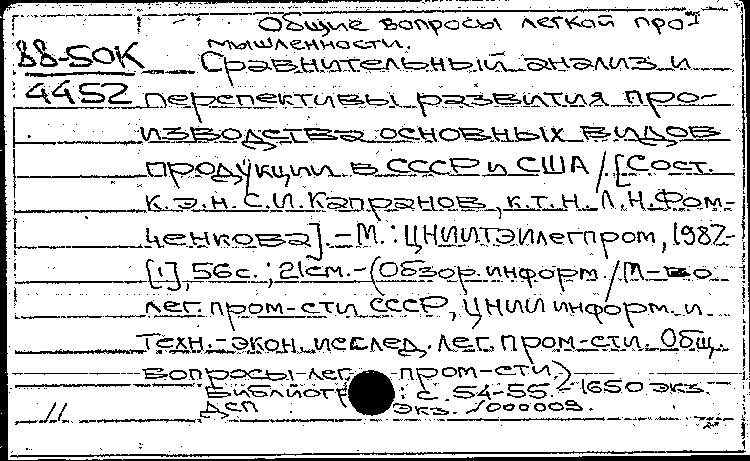 Общие вопросы легкой про
мышленности.
88-5ОК
Сравнительный анализ и
4452
перспективы развития про-
изводства основных видов
продукции в СССР и США /[Сост.
к.э.н. С.И. Капранов, к.т.н. Л.Н. Фом-
ченкова]. – М.: ЦНИИТЭИлегпром, 1987-
[1], 56 с.; 21 см. – (Обзор. информ. / М-во
лег. пром-сти СССР, ЦНИИ информ. и
техн.-экон. исслед. лег. пром-сти. Общ.
вопросы лег. пром-сти)
Библиогр : с. 54-55. – 1650 экз.
11 ДСП экз. 000009.